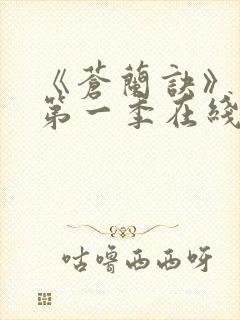 《蒼蘭訣》
第一季在綫
咕噜西西呀